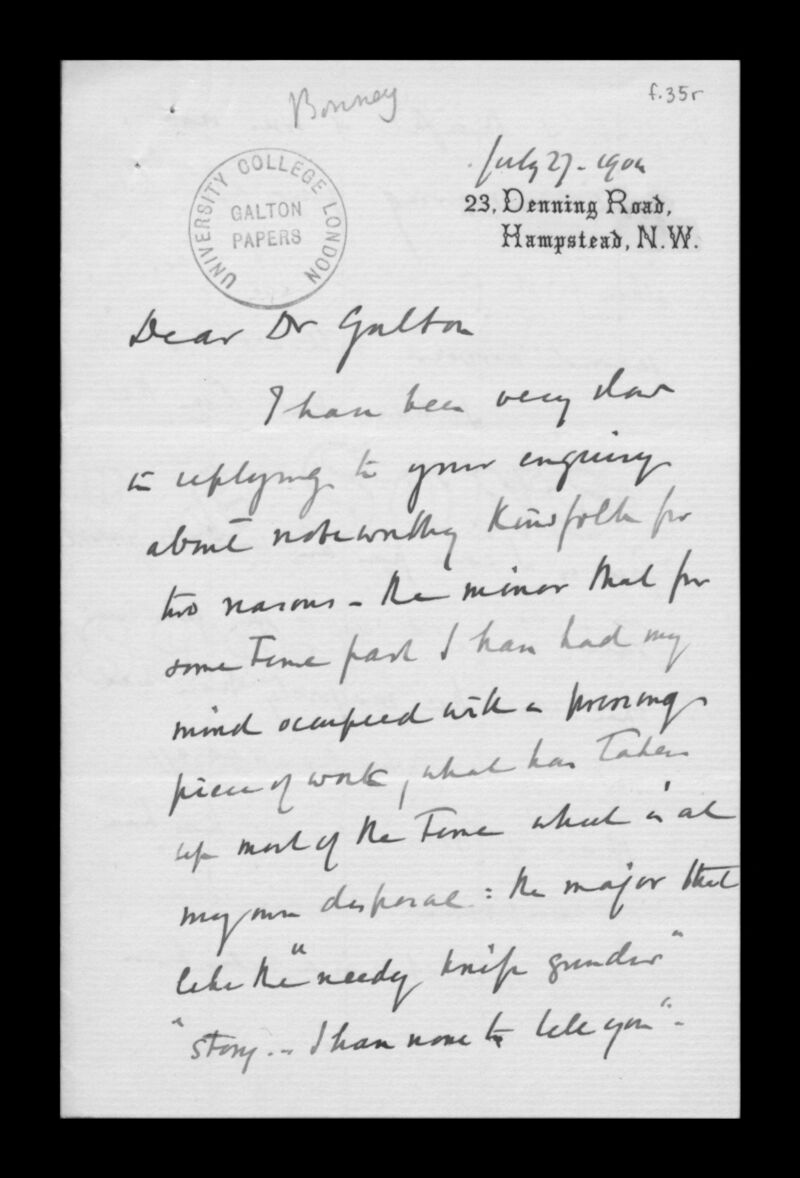 Bonney
f.35r
July 27 - 1904
UNIVERSITY COLLEGE LONDON
GALTON
PAPERS
23, Denning Road,
Hampstead, N.W.
Dear Dr Galton
I have been very slow
in replying to your enquiry
about noteworthy Kinsfolk for
two reasons - the minor that for
some time past I have had my
mind occupied with a pressing
piece of work, which has taken
up most of the time which is at
my own disposal : the major that
like the "needy knife grinder"
"story - I have none to tell you" -